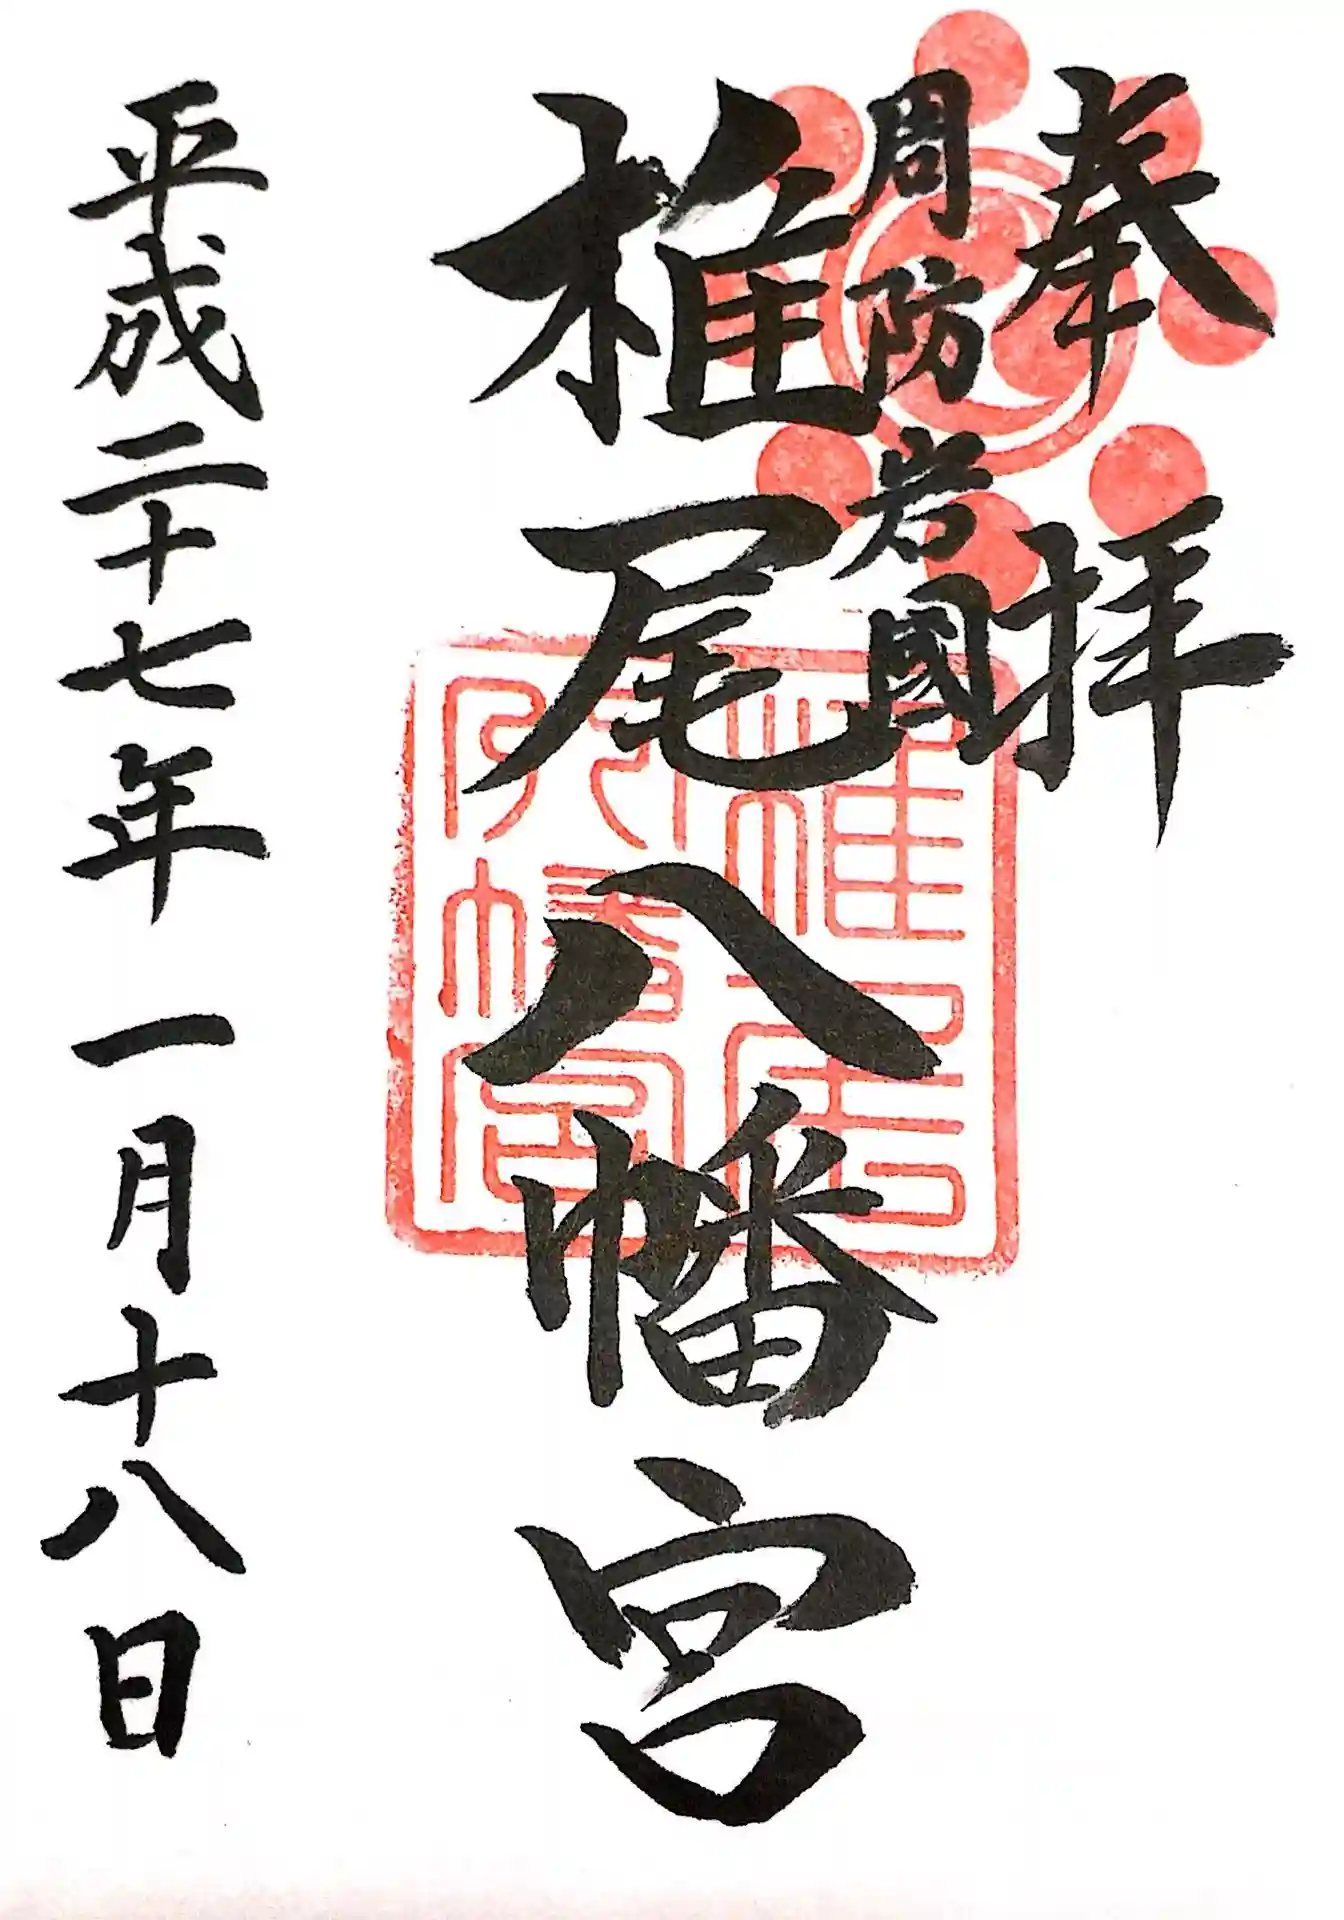 奉拝
周防岩國
椎尾八幡宮
椎尾八幡宮
平成二十七年一月十八日